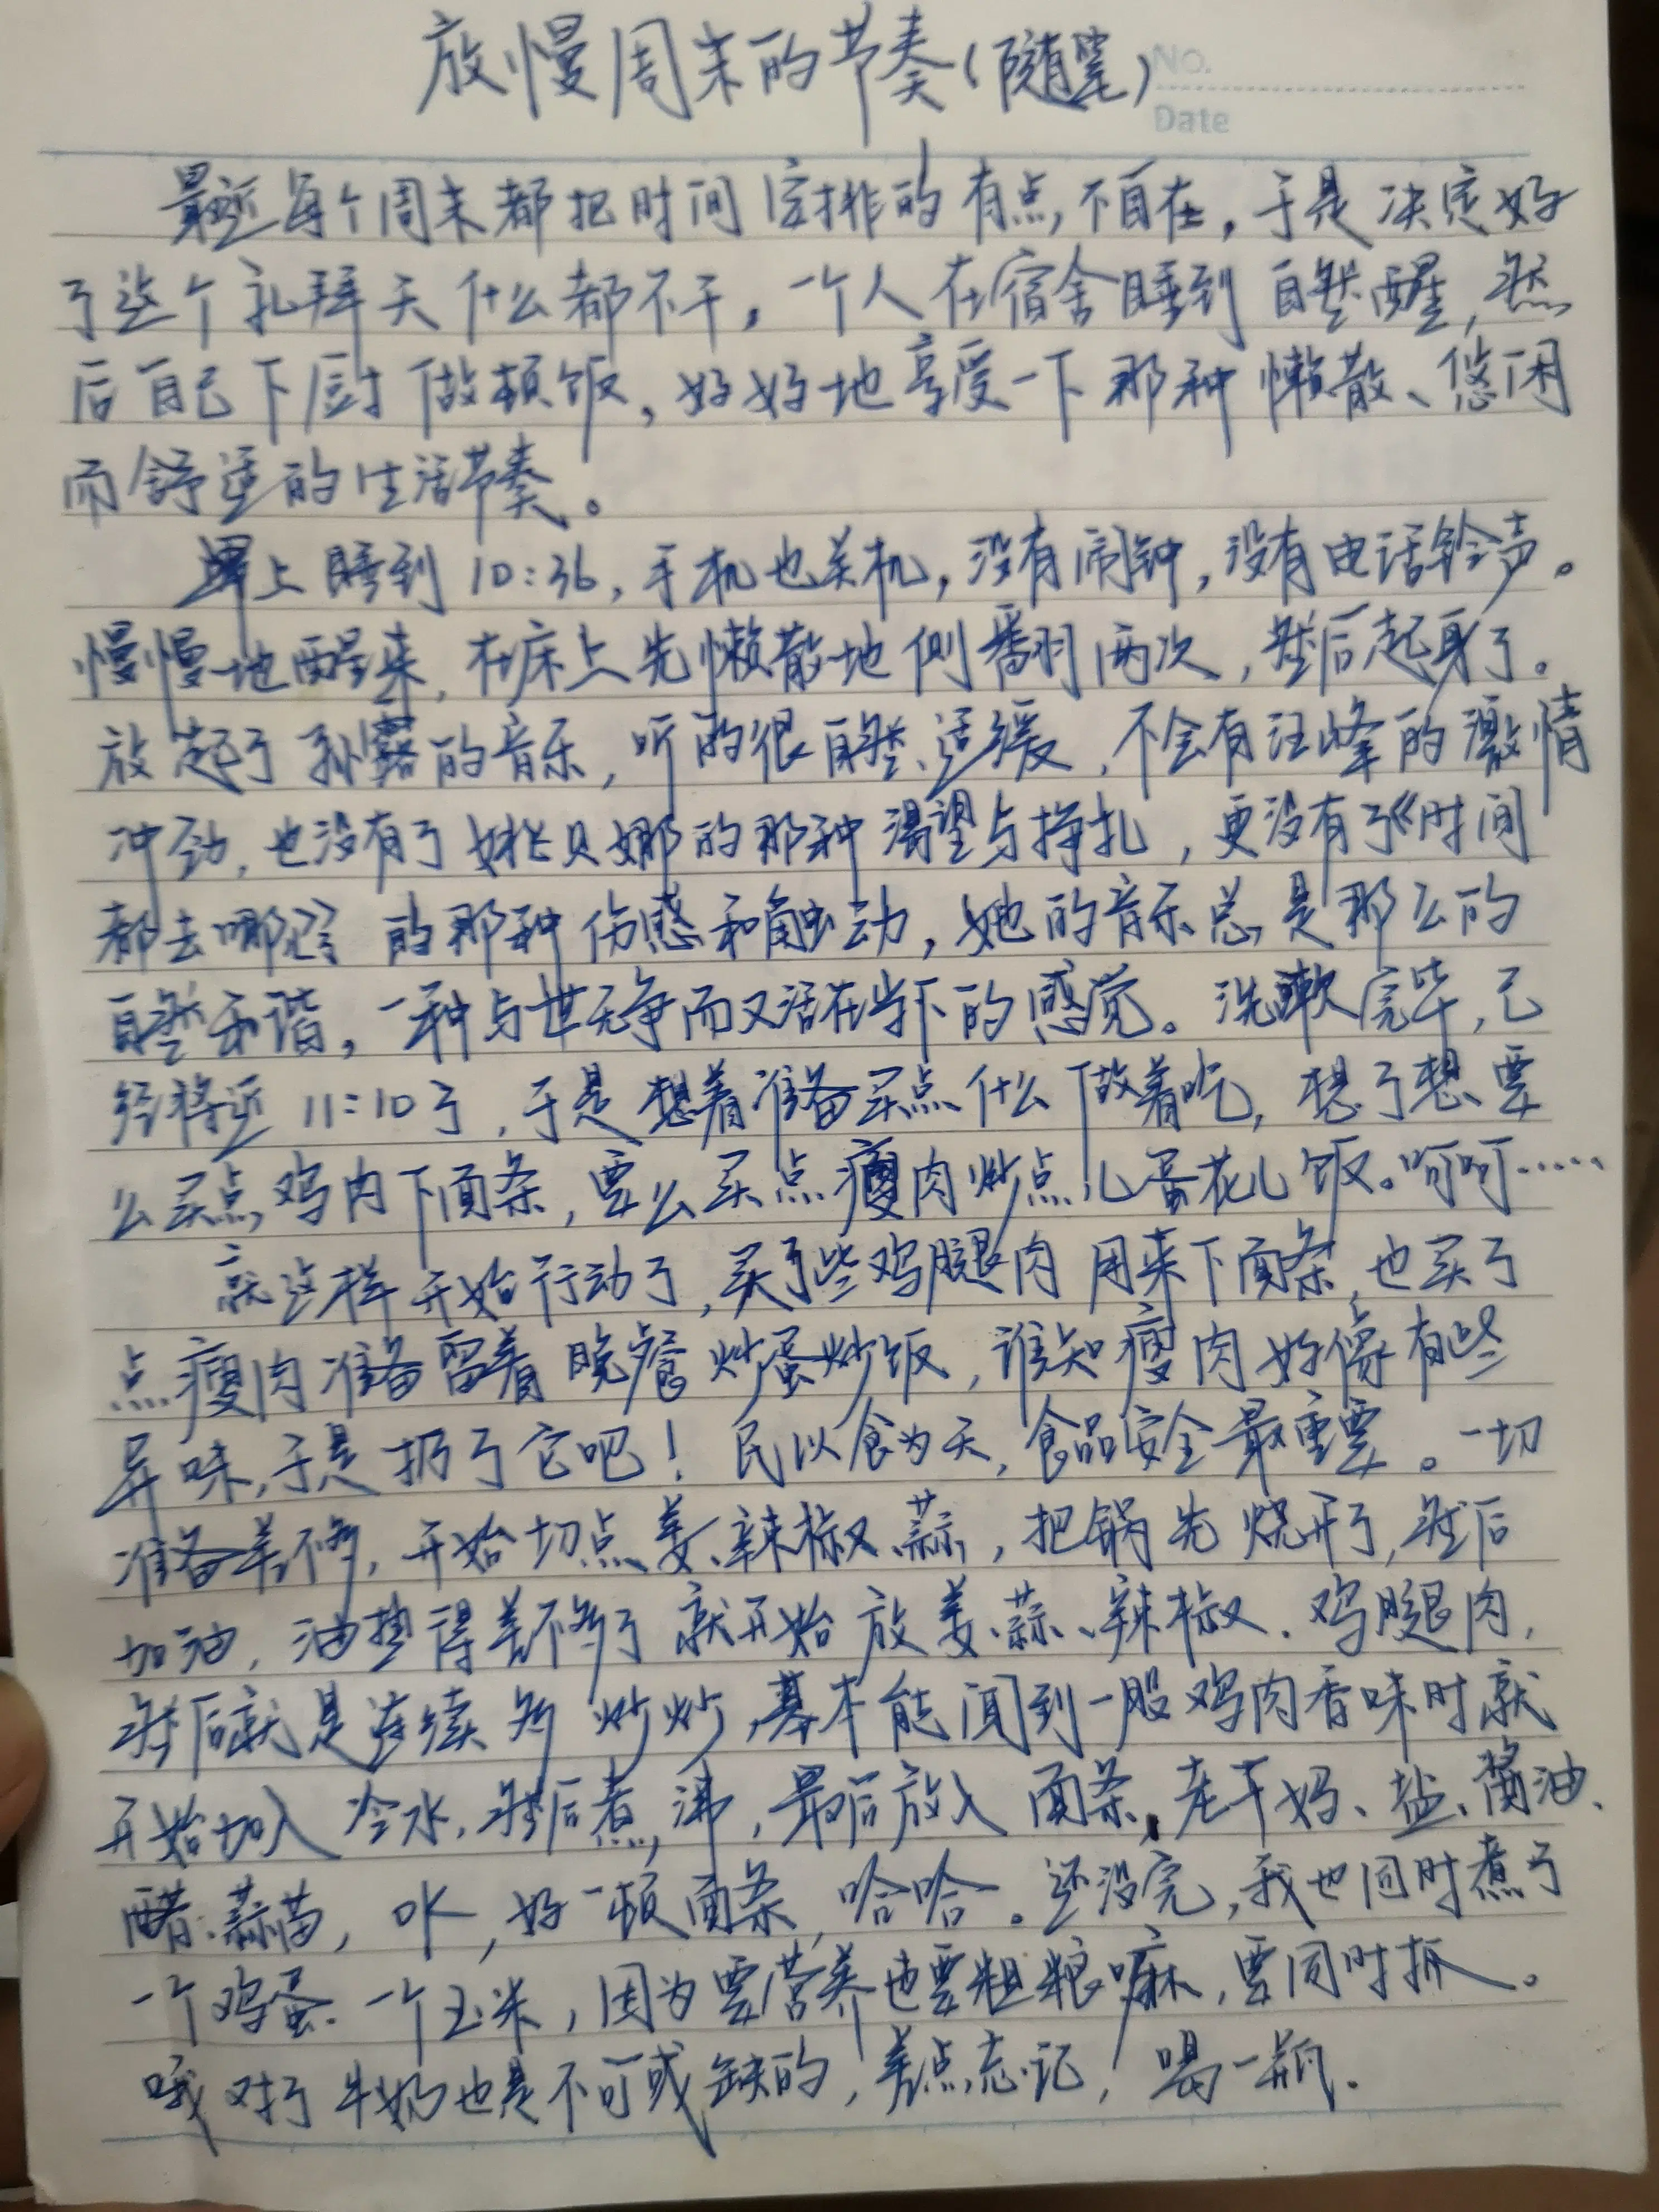 放慢周末的节奏(随笔)
No.
Date
最近每个周末都把时间安排的有点不自在,于是决定好
了这个礼拜天什么都不干,一个人在宿舍睡到自然醒,然
后自己下厨做顿饭,好好地享受一下那种懒散、悠闲
而舒适的生活节奏。
早上睡到10:36,手机也关机,没有闹钟,没有电话铃声。
慢慢地醒来,在床上先懒散地侧翻两次,然后起身了。
放起了孙露的音乐,听的很自然、适缓,不会有汪峰的激情
冲劲,也没有了姚贝娜的那种渴望与挣扎,更没有了《时间
都去哪》的那种伤感和触动,她的音乐总是那么的
自然和谐,一种与世无争而又活在当下的感觉。洗漱完毕,已
经将近11:10了,于是想着准备买点什么做着吃,想了想要
么买点鸡肉下面条,要么买点瘦肉炒点儿蛋花儿饭。呵呵……
就这样开始行动了,买了些鸡腿肉用来下面条,也买了
点瘦肉准备留着晚餐炒蛋炒饭,谁知瘦肉好像有些
异味,于是扔了它吧!民以食为天,食品安全最重要。一切
准备差不多,开始切点姜、辣椒、蒜,把锅先烧开了,然后
加油,油热得差不多了就开始放姜、蒜、辣椒、鸡腿肉,
然后就是连续炒炒,基本能闻到一股鸡肉香味时就
开始加入冷水,然后煮沸,最后放入面条,老干妈、盐、酱油、
醋、蒜苗,OK,好一顿面条,哈哈。还没完,我也同时煮了
一个鸡蛋、一个玉米,因为要营养也要粗粮嘛,要同时抓。
哦对了牛奶也是不可或缺的,差点忘记,喝一瓶.